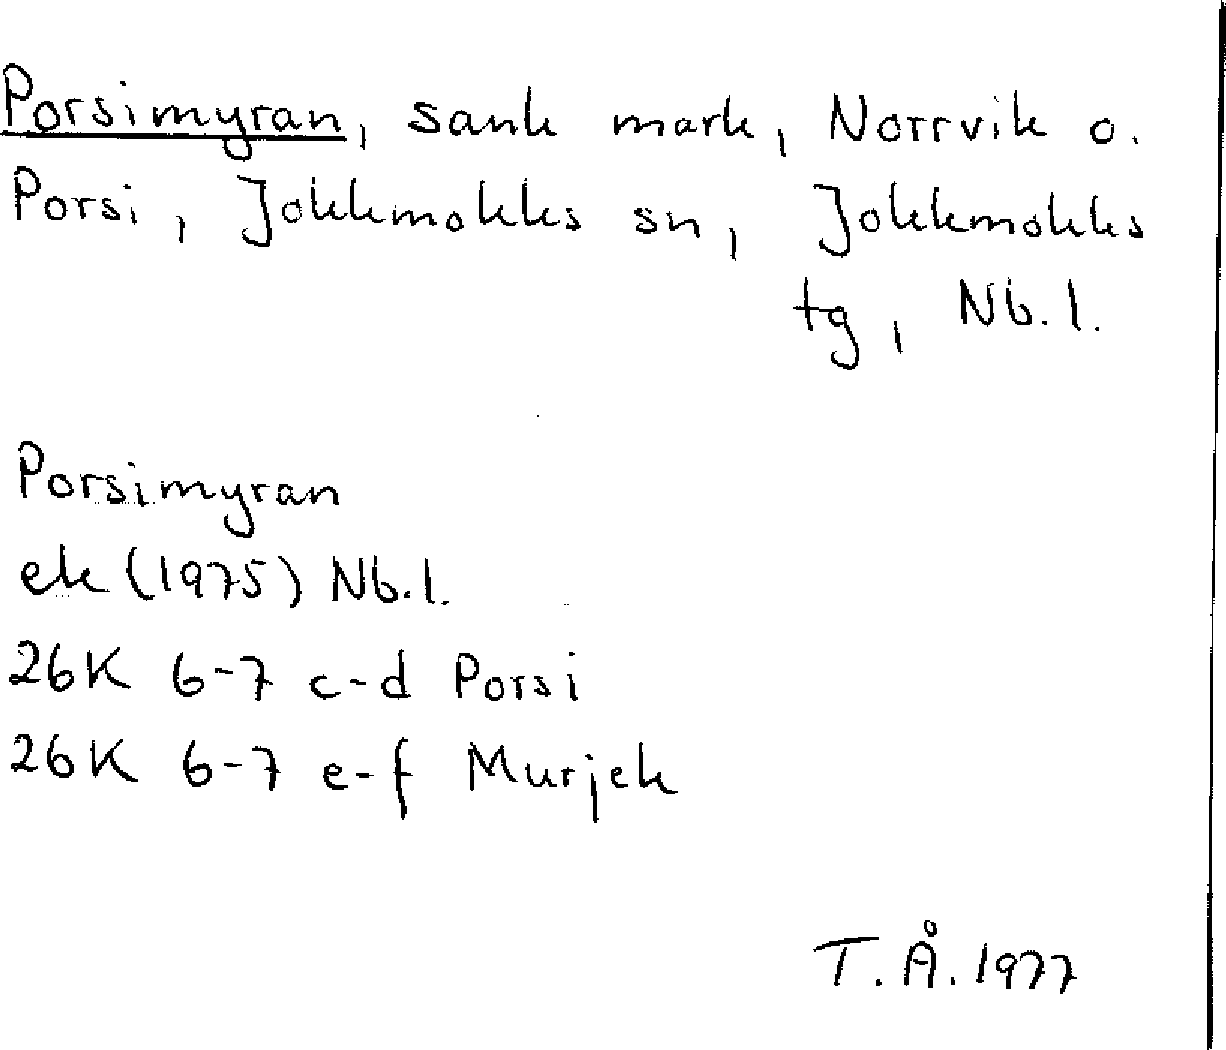 Porsimyran, sank mark, Norrvik o.
Porsi, Jokkmokks sn, Jokkmokks
tg, Nb.l.
Porsimyran
ek (1975) Nb.l.
26K 6-7 c-d Porsi
26K 6-7 e-f Murjek
T.Å. 1977